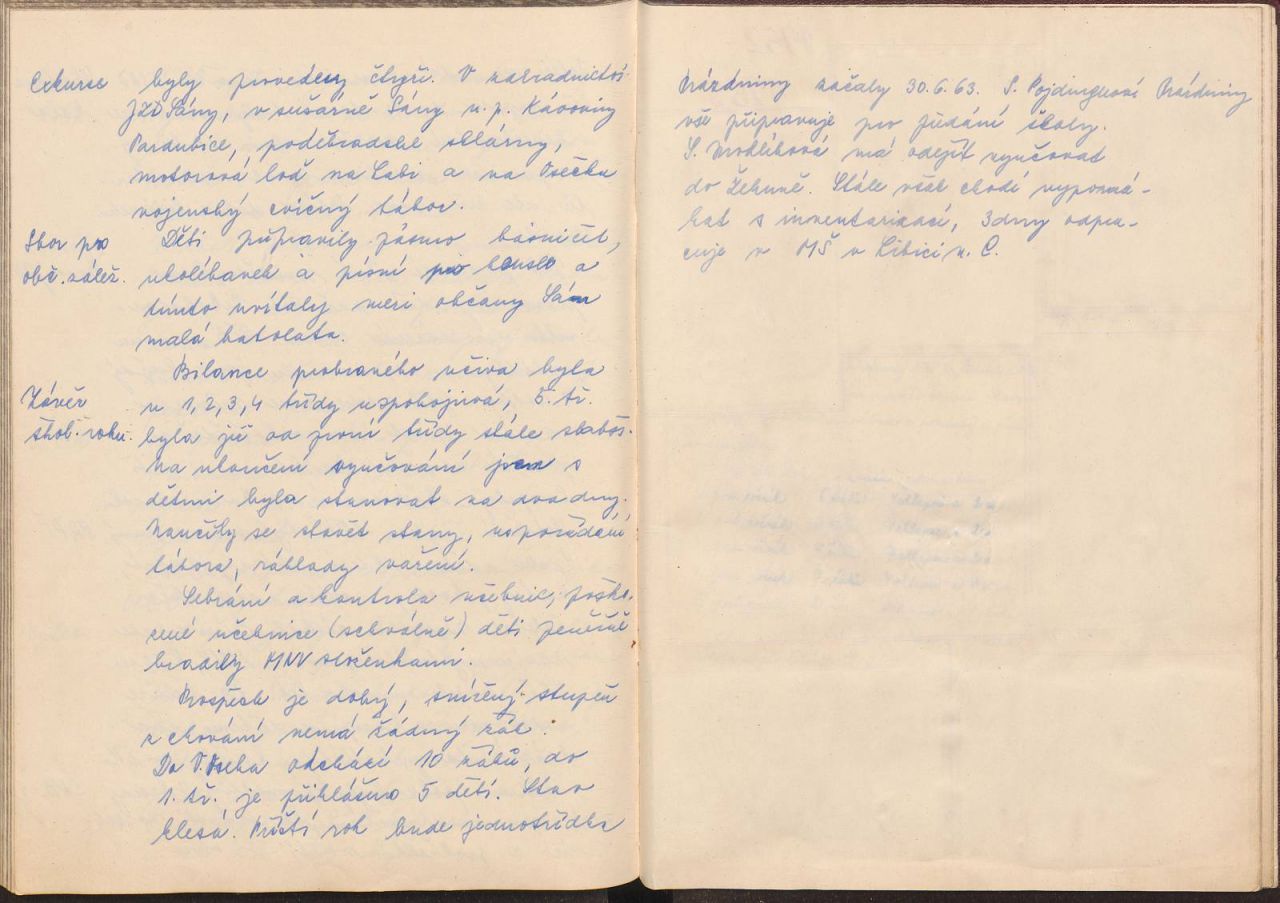 Exkurse byly provedeny čtyři. V zahradnictví
JZD Sány, v sušárně Sány n.p. Kávoviny
Pardubice, poděbradské sklárny,
motorová loď na Labi a na Osečku
vojenský cvičný tábor.
Sbor pro Děti připravily pásmo básniček,
obč. zálež. ukolébavek a písní pro housle a
tímto uvítaly mezi občany Sán
malá batolata.
Bilance probraného učiva byla
Závěr v 1,2,3,4 třídy uspokojivá, 5. tř.
škol. roku. byla již od první třídy stále slabší.
Na ukončení vyučování jsem s
dětmi byla stanovat na dva dny.
Naučily se stavět stany, uspořádání
tábora, základy vaření.
Sebrání a kontrola učebnic, poško-
zené učebnice (schválně) děti peněžně
hradily MNV složenkami.
Prospěch je dobrý, snížený stupeň
z chování nemá žádný žák.
Do V. Oseka odchází 10 žáků, do
1. tř. je přihlášeno 5 dětí. Stav
klesá. Příští rok bude jednotřídka
Prázdniny začaly 30.6.63. S. Pojdinguová Prázdniny
vše připravuje pro předání školy.
S. Modlíková má odejít vyučovat
do Žehuně. Stále však chodí vypomá-
hat s inventarizací, 3 dny odpra-
cuje v MŠ v Libici n. C.